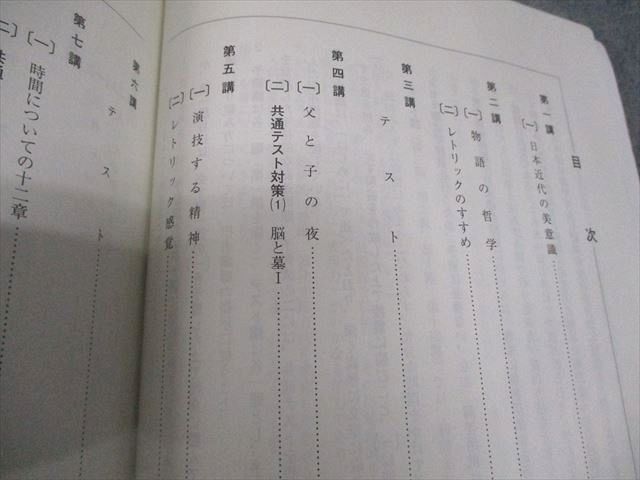 目次
第一講
〔一〕 日本近代の美意識
第二講
〔一〕 物語の哲学
〔二〕 レトリックのすすめ
第三講
テスト
第四講
〔一〕 父と子の夜
〔二〕 共通テスト対策(1) 脳と墓Ⅰ
第五講
〔一〕 演技する精神
〔二〕 レトリック感覚
第六講
テスト
第七講
〔一〕 時間についての十二章
〔二〕 共通